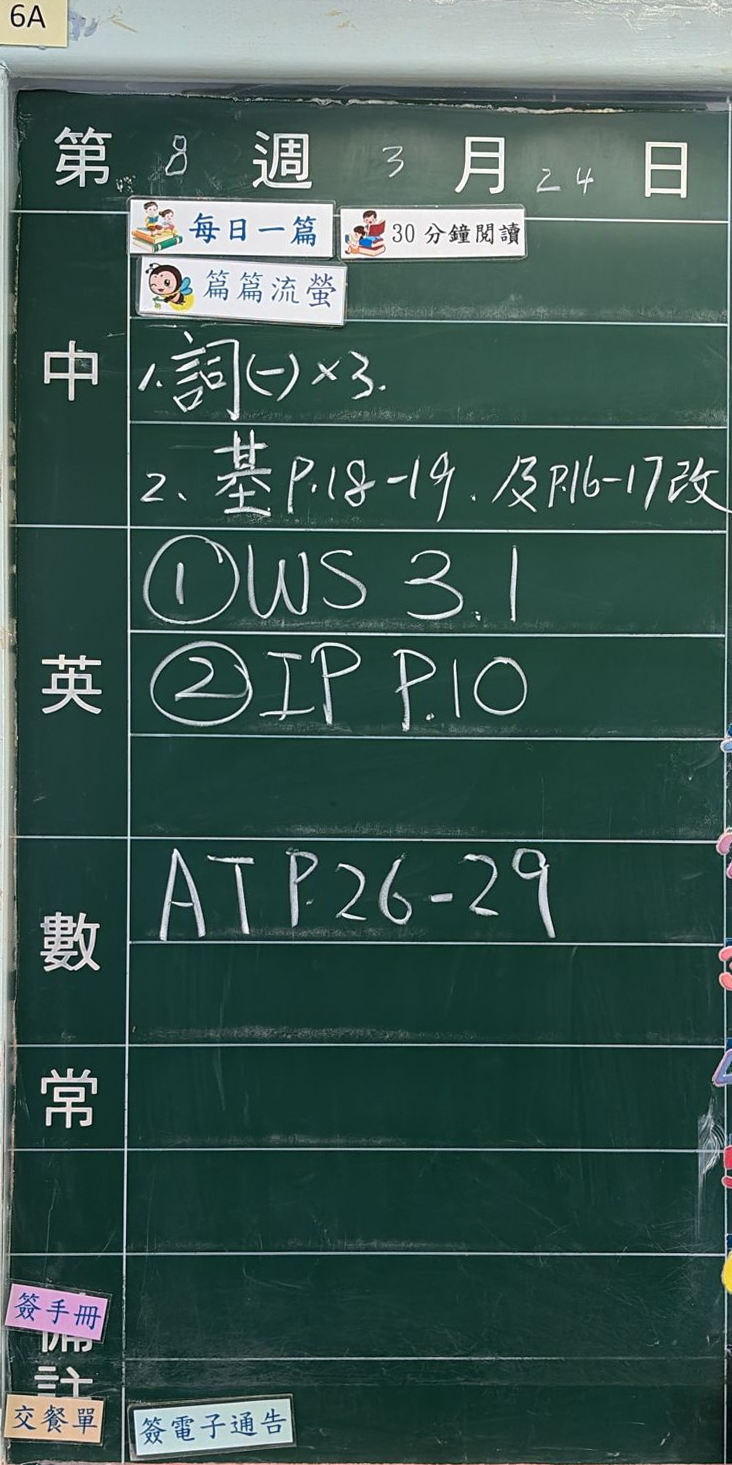 6A
第 8 週 3 月 24 日
每日一篇 30分鐘閱讀
篇篇流螢
中
1.詞(一)×3.
2、基P.18-19、及P.16-17改
英
①WS 3.1
②IP P.10
數
AT P.26-29
常
簽手冊
備註
交餐單
簽電子通告